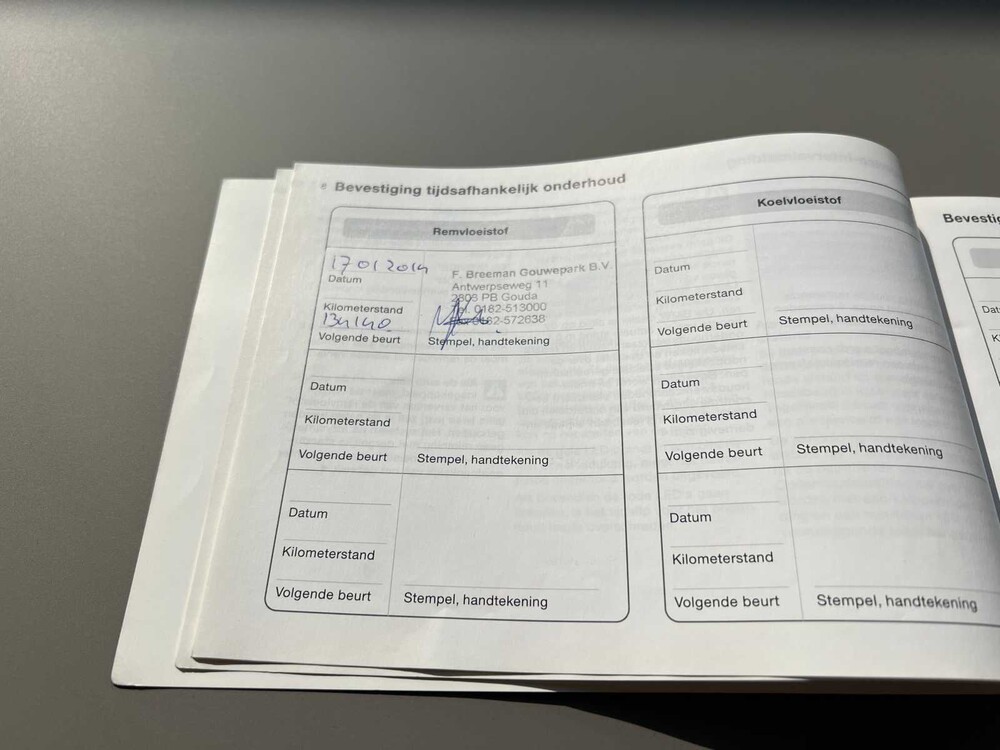 Bevestiging tijdsafhankelijk onderhoud
Remvloeistof
17 01 2014
Datum
Kilometerstand
Volgende beurt
F. Breeman Gouwepark B.V.
Antwerpseweg 11
2803 PB Gouda
0182-513000
-572638
Stempel, handtekening
Datum
Kilometerstand
Volgende beurt
Stempel, handtekening
Datum
Kilometerstand
Volgende beurt
Stempel, handtekening
Koelvloeistof
Datum
Kilometerstand
Volgende beurt
Stempel, handtekening
Datum
Kilometerstand
Volgende beurt
Stempel, handtekening
Datum
Kilometerstand
Volgende beurt
Stempel, handtekening